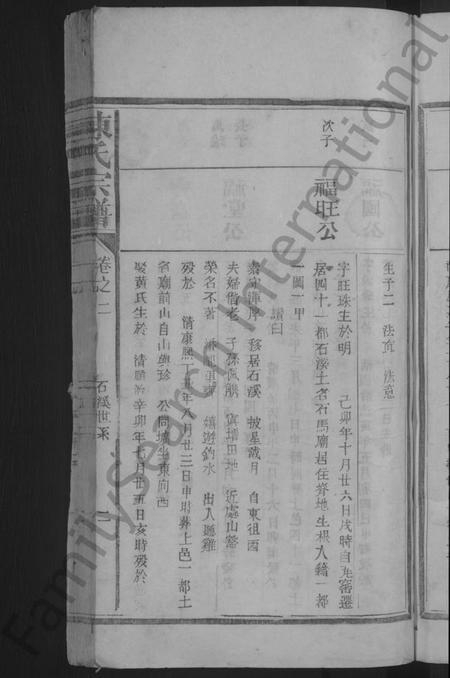 生子二 法真 法意
次子 福旺公
字旺珠生於明 己卯年十月廿六日戌時自 窰遷
居四十一都石溪土名石馬廟居住 地生根入籍一都
一圖一甲
讚曰
移居石溪 披星戴月 自東徂西
夫婦偕老 子孫 田地 近處山谿
榮名不著 嬉遊釣水 出入 雞
歿於 清康熙丁 年八月廿三日申時葬上邑一都土
名廟前山自山 公同墳坐東向西
娶黃氏生於 清順治辛卯年十月廿五日亥時歿於
陳氏宗譜 卷之二 石溪世系 二
FamilySearch International